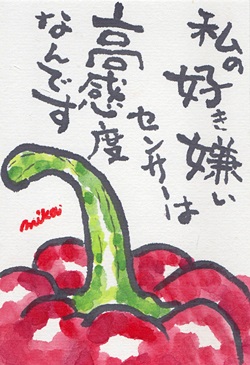 私の好き嫌い
センサーは
高感度
なんです
mikei